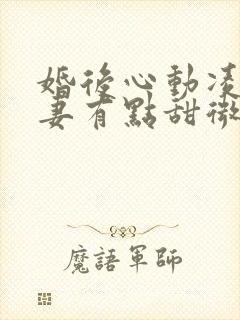 婚後心動凌
妻有點甜微
魔語軍師